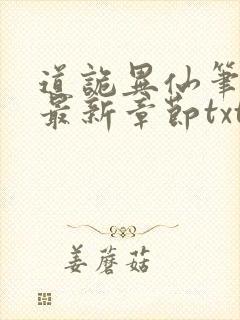 道詭異仙筆
最新章節txt
姜蘑菇